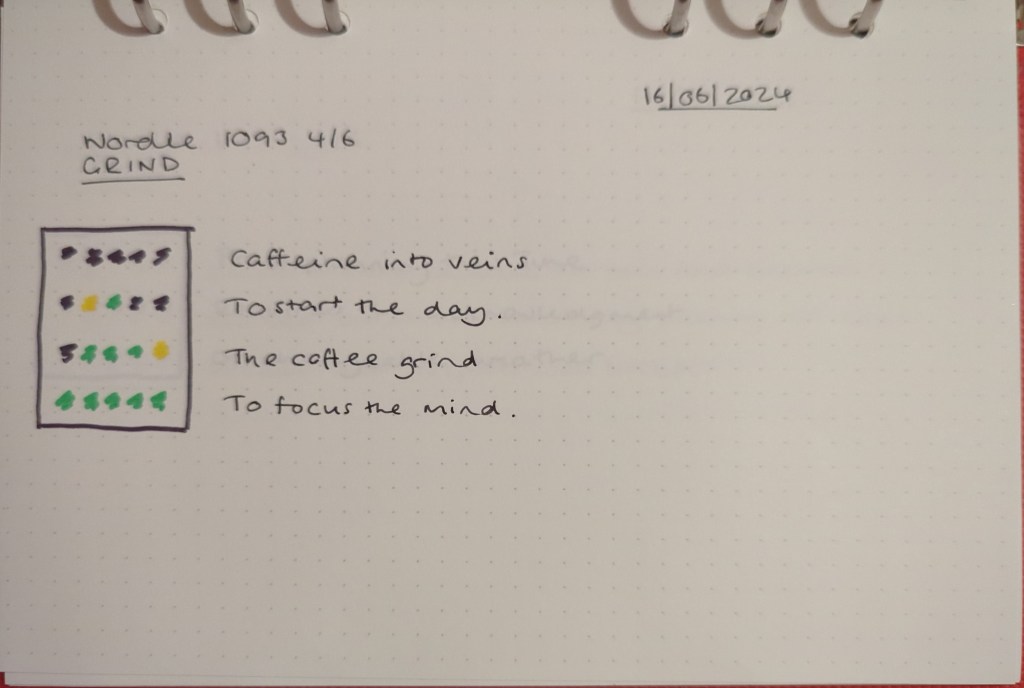 16/06/2024
Wordle 1093 4/6
GRIND
Caffeine into veins
To start the day.
The coffee grind
To focus the mind.